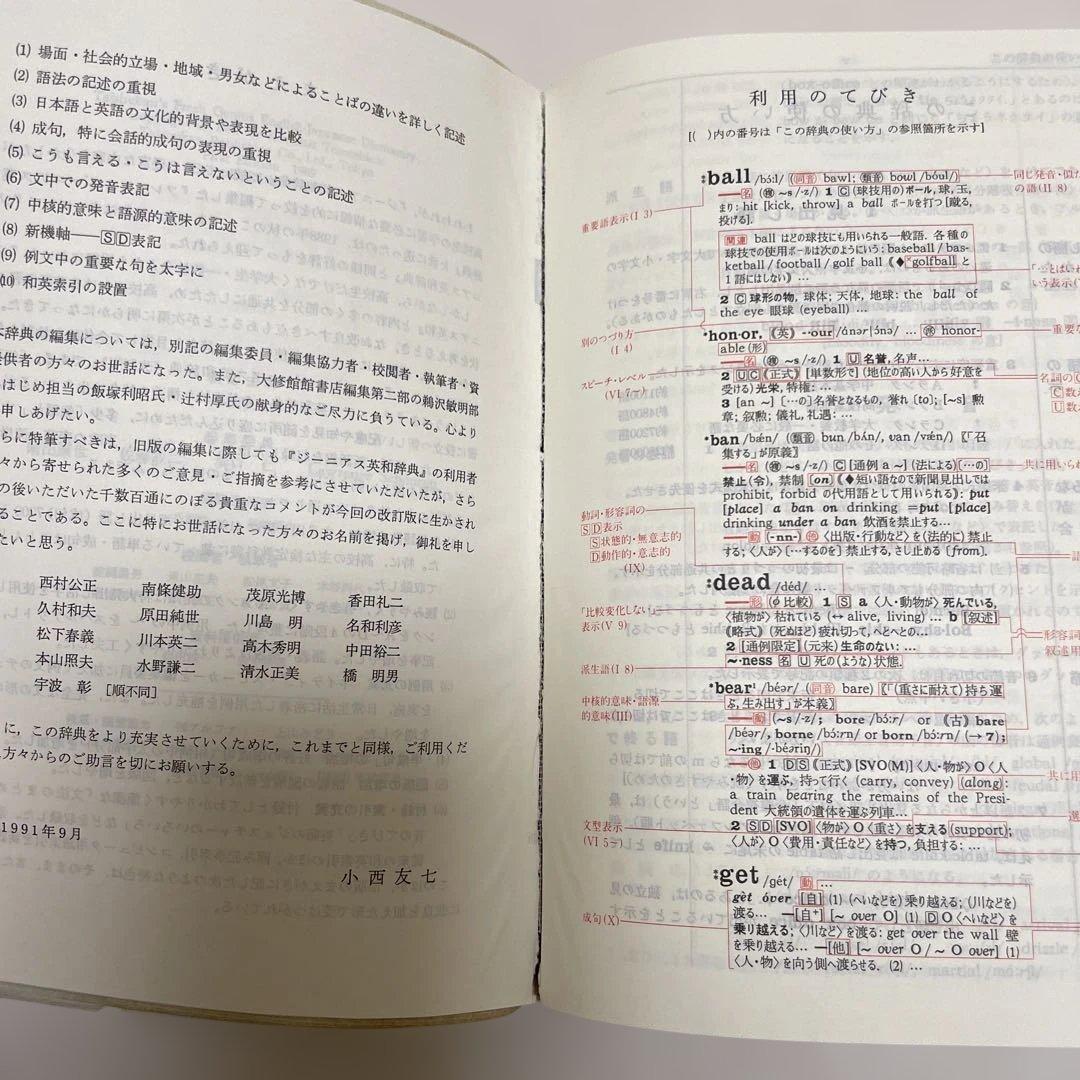 (1) 場面・社会的立場・地域・男女などによることばの違いを詳しく記述
(2) 語法の記述の重視
(3) 日本語と英語の文化的背景や表現を比較
(4) 成句，特に会話的成句の表現の重視
(5) こうも言える・こうは言えないということの記述
(6) 文中での発音表記
(7) 中核的意味と語源的意味の記述
(8) 新機軸――SD表記
(9) 例文中の重要な句を太字に
(10) 和英索引の設置
本辞典の編集については，別記の編集委員・編集協力者・校閲者・執筆者・資
提供者の方々のお世話になった。また，大修館書店編集第二部の鵜沢敏明部
はじめ担当の飯塚利昭氏・辻村厚氏の献身的なご尽力に負うている。心より
申しあげたい。
らに特筆すべきは，旧版の編集に際しても『ジーニアス英和辞典』の利用者
々から寄せられた多くのご意見・ご指摘を参考にさせていただいたが，さら
の後いただいた千数百通にのぼる貴重なコメントが今回の改訂版に生かされ
ることである。ここに特にお世話になった方々のお名前を掲げ，御礼を申し
たいと思う。
西村公正 南條健助 茂原光博 香田礼二
久村和夫 原田純世 川島 明 名和利彦
松下春義 川本英二 高木秀明 中田裕二
本山照夫 水野謙二 清水正美 橋 明男
宇波 彰 ［順不同］
に，この辞典をより充実させていくために，これまでと同様，ご利用くだ
方々からのご助言を切にお願いする。
1991年9月
小西友七
利用のてびき
[( )内の番号は「この辞典の使い方」の参照箇所を示す]
:ball /bɔ́ːl/ (同音 bawl; 類音 bowl /bóul/)
同じ発音・似た
の語(II 8)
―名 (複 ~s /-z/) 1 C (球技用の)ボール, 球, 玉,
まり: hit [kick, throw] a ball ボールを打つ[蹴る,
投げる].
重要語表示(I 3)
関連 ball はどの球技にも用いられる一般語. 各種の
球技での使用ボールは次のようにいう: baseball / bas-
ketball / football / golf ball (◆×golfball と
1語にはしない) ...
2 C 球形の物, 球体; 天体, 地球: the ball of
the eye 眼球 (eyeball) ...
*hon·or, (英) --our /ɑ́nər|ɔ́nə/ ... 派 honor-
able (形)
別のつづり方
(I 4)
―名 (複 ~s /-z/) 1 U 名誉, 名声...
2 UC (正式) [単数形で] (地位の高い人から好意を
受ける)光栄, 特権: ...
3 [an ~] […の]名誉となるもの, 誉れ [to]; [~s] 勲
章; 叙勲; 儀礼, 礼遇: ...
スピーチ・レベル
(VI 7)
*ban /bǽn/ (類音 bun /bʌ́n/, van /vǽn/) [「召
集する」が原義]
―名 (複 ~s /-z/) C [通例 a ~] (法による) […の]
禁止(令), 禁制 [on] (◆短い語なので新聞見出しでは
prohibit, forbid の代用語として用いられる): put
[place] a ban on drinking =put [place]
drinking under a ban 飲酒を禁止する...
―動 (-nn-) 他 〈出版・行動など〉を(法的に) 禁止
する; 〈人が〉 […するのを] 禁止する, さし止める [from].
動詞・形容詞の
SD表示
S状態的・無意志的
D動作的・意志的
(IX)
:dead /déd/ ...
―形 (φ比較) 1 S a 〈人・動物が〉 死んでいる,
〈植物が〉 枯れている (↔ alive, living) ... b [叙述]
(略式) (死ぬほど) 疲れ切って, へとへとの...
2 [通例限定] (元来) 生命のない: ...
~·ness 名 U 死の(ような)状態.
「比較変化しない」
表示(V 9)
派生語(I 8)
:bear¹ /béər/ (同音 bare) [「(重さに耐えて)持ち運
ぶ, 生み出す」が本義]
―動 (~s /-z/; bore /bɔ́ːr/ or (古) bare
/béər/, borne /bɔ́ːrn/ or born /bɔ́ːrn/ (→ 7);
~·ing /-béəriŋ/)
中核的意味・語源
的意味(III)
―他 1 DS (正式) [SVO(M)] 〈人・物が〉 O〈人
・物〉を運ぶ, 持って行く (carry, convey) (along):
a train bearing the remains of the Presi-
dent 大統領の遺体を運ぶ列車...
2 SD [SVO] 〈物が〉 O〈重さ〉を支える (support);
〈人が〉 O〈費用・責任など〉を持つ, 負担する: ...
文型表示
:get /gét/ 動 ...
gèt óver [自] (1) (へいなどを) 乗り越える; (川などを)
渡る... ―[自⁺] [~ over O] (1) D O〈へいなど〉を
乗り越える; 〈川など〉を渡る: get over the wall 壁
を乗り越える... ―[他] [~ over O / ~ O over] (1)
〈人・物〉を向う側へ渡らせる. (2) ...
成句(X)